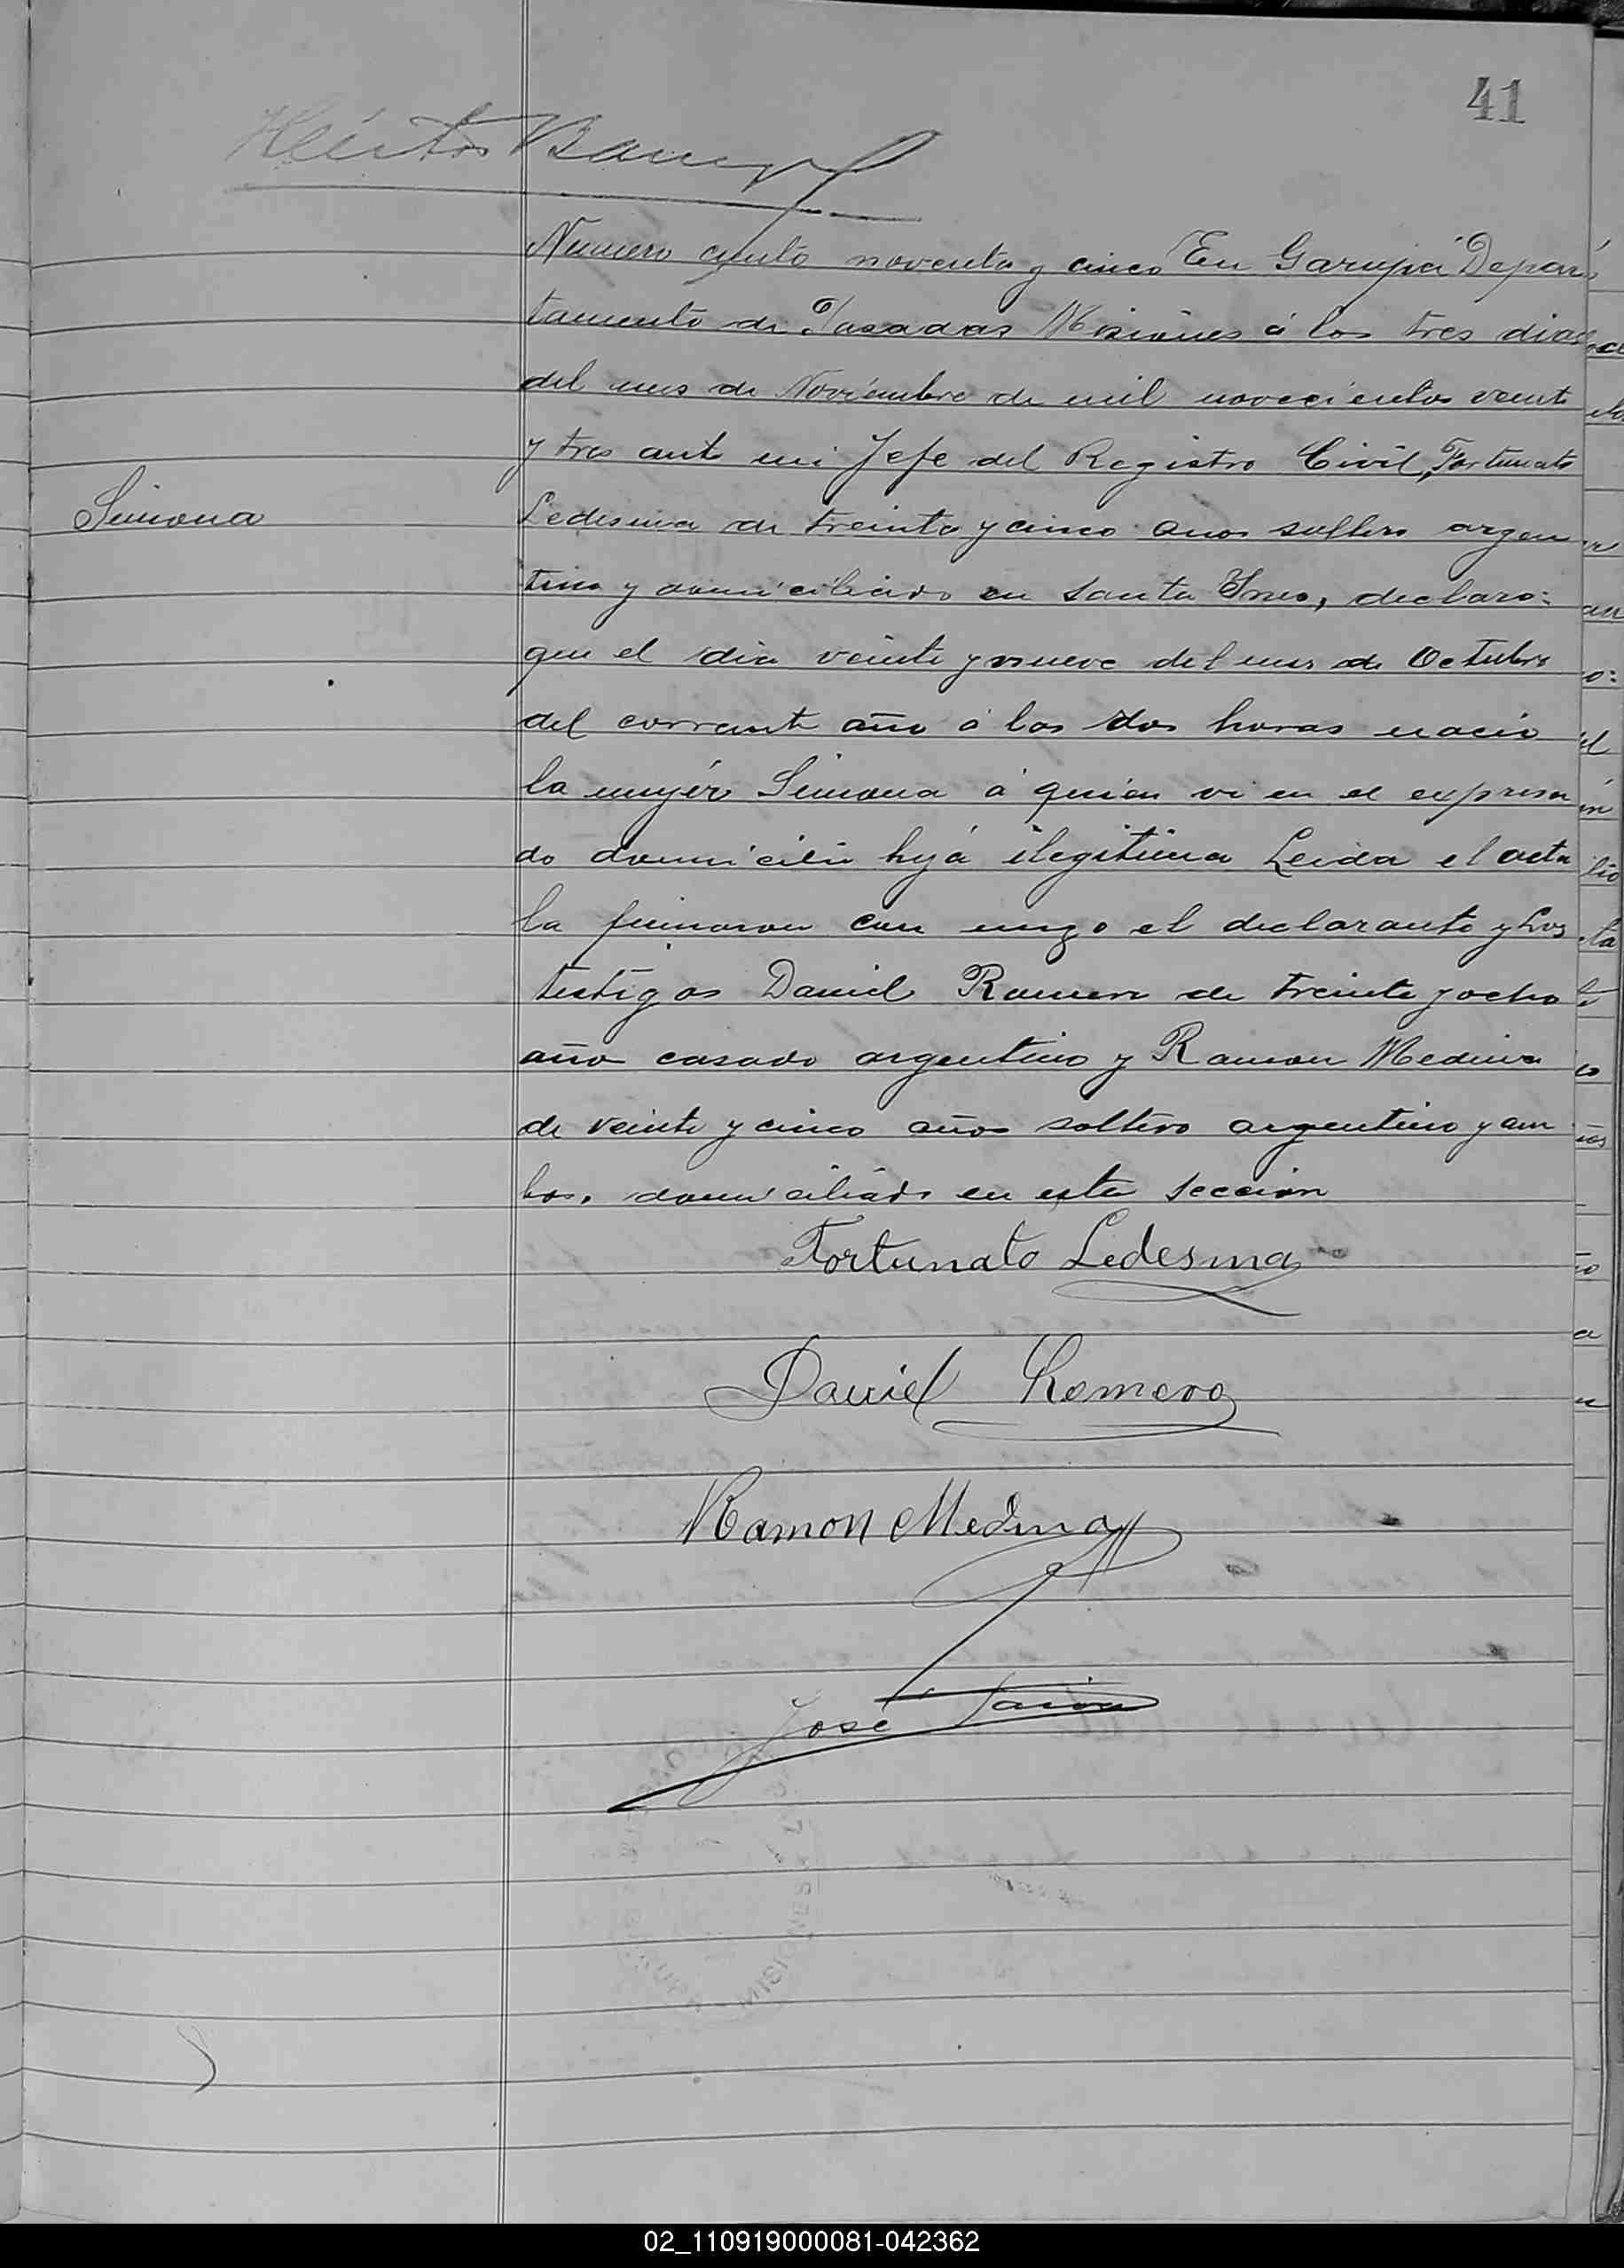 41
Numero ciento noventa y cinco En Garupá Depar
tamento de Posadas Misiones á los tres dias
del mes de Noviembre de mil novecientos veinte
y tres ante mi Jefe del Registro Civil, Fortunato
Simona
Ledesma de treinta y cinco años soltero argen
tino y domiciliado en Santa Ines, declaro:
que el dia veinte y nueve del mes de Octubre
del corriente año á las dos horas nacio
la mujer Simona á quien vi en el expresa
do domicilio hija ilegitima Leida el acta
la firmaron con migo el declarante y los
testigos Daniel Romero de treinta y ocho
año casado argentino y Ramon Medina
de veinte y cinco años soltero argentino y am
bos, domiciliado en esta seccion
Fortunato Ledesma
Daniel Romero
Ramon Medina
José
MISIONES
02_110919000081-042362